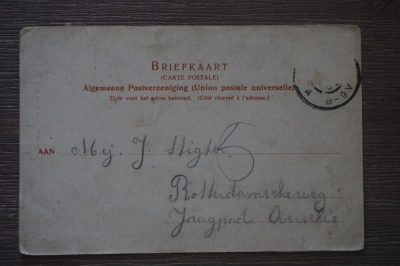 BRIEFKAART
(CARTE POSTALE)
Algemeene Postvereeniging (Union postale universelle)
Zijde voor het adres bestemd. (Côté réservé à l'adresse.)
AAN Mej. J. Stigter
5
Rotterdamscheweg
Jaagpad
8-9V